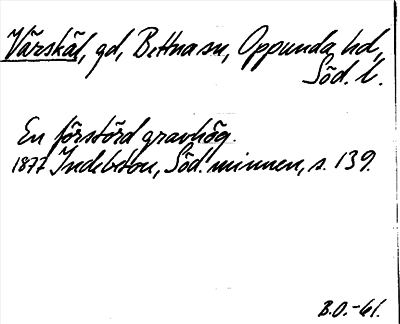 Vårskäl, gd, Bettna sn, Oppunda hd,
Söd. l.
En förstörd gravhög.
1877 Indebetou, Söd. minnen, s. 139.
B.O.-61.